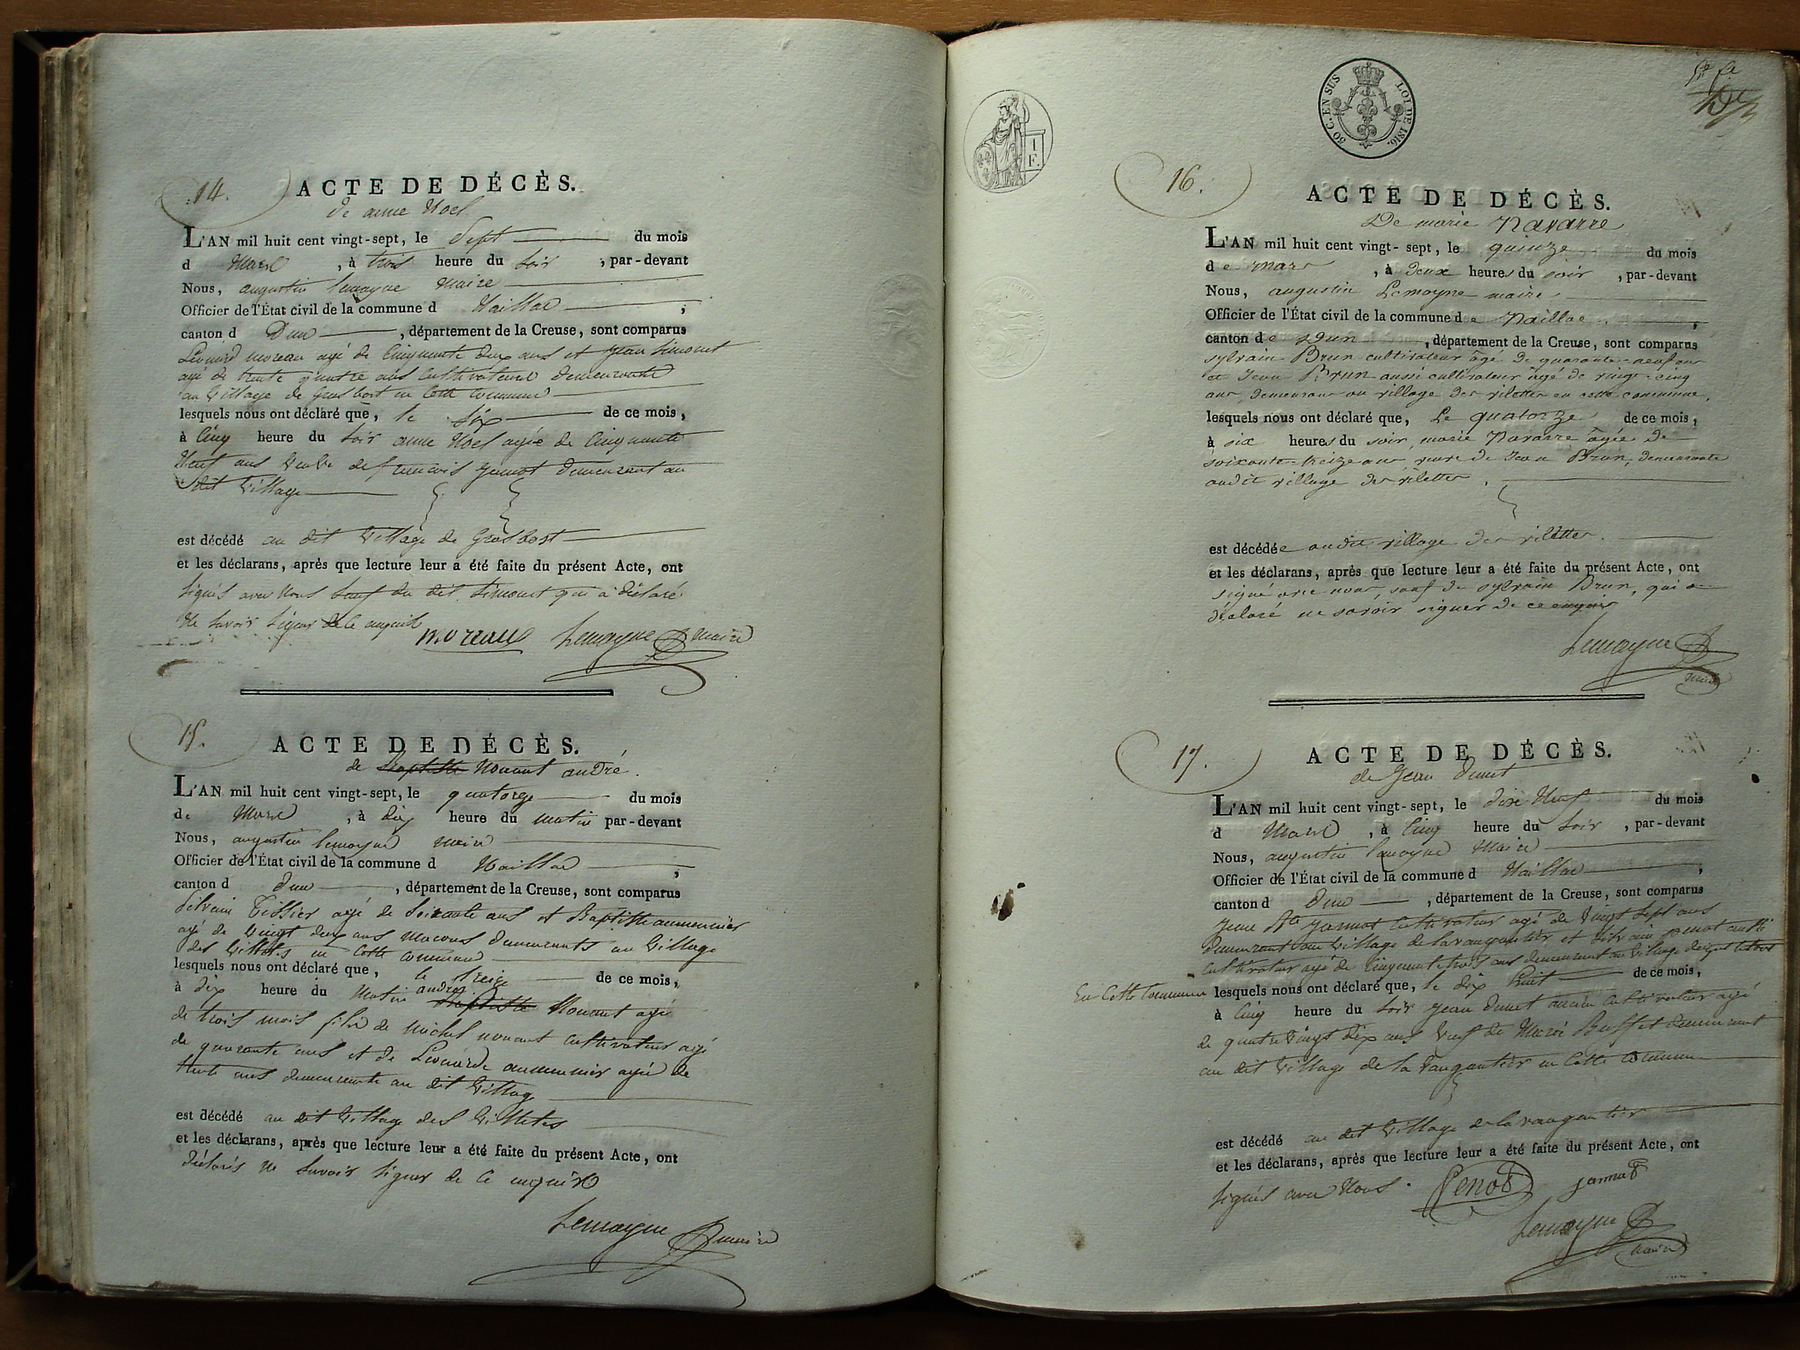 14.
ACTE DE DÉCÈS.
de anne Noel
L'AN mil huit cent vingt-sept, le Sept du mois
d Mars , à trois heure du soir , par-devant
Nous, augustin lemoyne Maire
Officier de l'État civil de la commune d Naillac ;
canton d Dun , département de la Creuse, sont comparus
Léonard moreau agé de Cinquante deux ans et jean Simonet
agé de trente quatre ans Cultivateurs demeurants
au Village de Grosbost en Cette Commune
lesquels nous ont déclaré que, le six de ce mois,
à Cinq heure du soir anne Noel agée de Cinquante
Neuf ans Veuve de francois demeurant au
dit Village
est décédé au dit Village de Grosbost
et les déclarans, après que lecture leur a été faite du présent Acte, ont
signés avec Nous Sauf du dit Simonet qui a déclaré
Ne savoir signer de ce enquis
moreau Lemoyne maire
15.
ACTE DE DÉCÈS.
de Baptiste Nouant andré.
L'AN mil huit cent vingt-sept, le quatorze du mois
de Mars , à dix heure du matin par-devant
Nous, augustin lemoyne maire
Officier de l'État civil de la commune d Naillac ;
canton d Dun , département de la Creuse, sont comparus
Silvain Tissier agé de Soixante ans et Baptiste aumenier
agé de Vingt deux ans Macons demeurants au Village
des Villetes en Cette Commune
lesquels nous ont déclaré que, le treize de ce mois,
andré
à dix heure du Matin Baptiste Nouant agé
de trois mois fils de Michel nouant Cultivateur agé
de quarante ans et de Léonarde aumenier agée de
trente ans demeurants au dit Village
est décédé au dit Village des Villetes
et les déclarans, après que lecture leur a été faite du présent Acte, ont
déclarés Ne Savoir signer de Ce enquis
Lemoyne maire
30 C. EN SUS
LOI DE 1816.
I F.
16.
ACTE DE DÉCÈS.
De marie Navarre
L'AN mil huit cent vingt-sept, le quinze du mois
de mars , à deux heures du soir , par-devant
Nous, augustin Lemoyne maire
Officier de l'État civil de la commune de Naillac ,
canton de Dun , département de la Creuse, sont comparus
sylvain Brun cultivateur âgé de quarante-neuf ans
et Jean Brun aussi cultivateur âgé de vingt-cinq
ans, demeurans au village des vilettes en cette commune,
lesquels nous ont déclaré que, Le quatorze de ce mois,
à six heures du soir, marie Navarre âgée de
soixante-treize ans, veuve de Jean Brun, demeurante
audit village des vilettes.
est décédée audit village des vilettes.
et les déclarans, après que lecture leur a été faite du présent Acte, ont
signé avec nous, sauf de sylvain Brun, qui a
déclaré ne savoir signer de ce enquis
Lemoyne
maire
17.
ACTE DE DÉCÈS.
de Jean Dunet
L'AN mil huit cent vingt-sept, le dixe Neuf du mois
d Mars , à Cinq heure du Soir , par-devant
Nous, augustin lemoyne Maire
Officier de l'État civil de la commune d Naillac ;
canton d Dun , département de la Creuse, sont comparus
Jean Bte Jannot Cultivateur agé de Vingt Sept ans
demeurant au Village de lavaugautier et Silvain penot aussi
Cultivateur agé de Cinquante trois ans demeurant au Village
En Cette Commune lesquels nous ont déclaré que, le dix huit de ce mois,
à Cinq heure du Soir Jean Dunet ancien Cultivateur agé
de quatre Vingt dix ans Veuf de Marie Buffet demeurant
au dit Village de la Vaugautier en Cette Commune
est décédé au dit Village de la vaugautier
et les déclarans, après que lecture leur a été faite du présent Acte, ont
signés avec Nous. Penot jannot
Lemoyne
maire